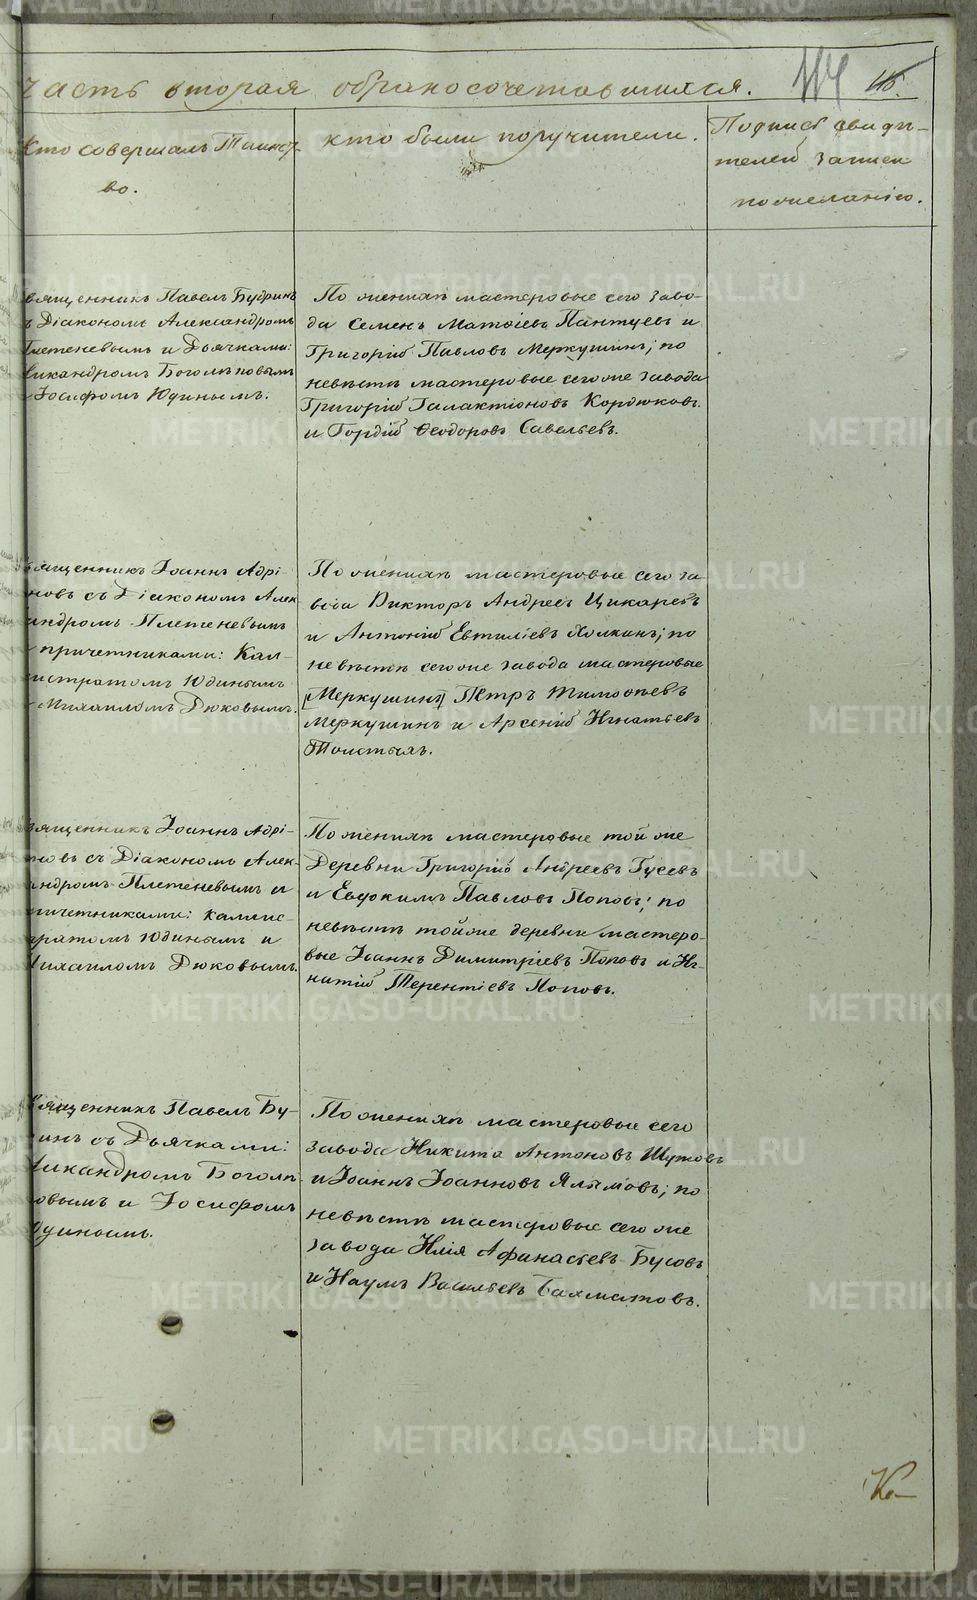 Часть вторая о бракосочетавшихся.
114
Кто совершалъ Таинст-
во.
Кто были поручители.
Подпись свидѣ-
телей записи
по желанію.
священникъ Павелъ Будринъ
съ Діакономъ Александромъ
Плетеневымъ и Дьячками:
Никандромъ Боголѣповымъ
и Іосифомъ Юдинымъ.
По женихѣ мастеровые сего заво-
да Семенъ Матѳіевъ Пантуевъ и
Григорій Павловъ Меркушинъ; по
невѣстѣ мастеровые сегоже завода
Григорій Галактіоновъ Кордюковъ
и Гордій Ѳеодоровъ Савельевъ.
Священникъ Іоаннъ Адрі-
ановъ съ Діакономъ Алек
сандромъ Плетеневымъ
и причетниками: Кал-
листратомъ Юдинымъ
и Михаиломъ Дюковымъ.
По женихѣ мастеровые сего за
вода Викторъ Андреевъ Цикаревъ
и Антоній Евтихіевъ Холкинъ; по
невѣстѣ сегоже завода мастеровые
[Меркушинъ] Петръ Тимоѳеевъ
Меркушинъ и Арсеній Игнатьевъ
Толстыхъ.
Священникъ Іоаннъ Адрі-
ановъ съ Діакономъ Алек-
сандромъ Плетеневымъ и
причетниками: Каллис-
тратомъ Юдинымъ и
Михаиломъ Дюковымъ.
По женихѣ мастеровые той же
Деревни Григорій Андреевъ Гусевъ
и Евдокимъ Павловъ Поповъ; по
невѣстѣ тойже деревни мастеро-
вые Іоаннъ Димитріевъ Поповъ и Иг-
натій Терентіевъ Поповъ.
Священникъ Павелъ Бу-
дринъ съ Дьячками:
Никандромъ Боголѣ
повымъ и Іосифомъ
Юдинымъ.
По женихѣ мастеровые сего
завода Никита Антоновъ Шутовъ
и Іоаннъ Іоанновъ Ялымовъ; по
невѣстѣ мастеровые сегоже
завода Илія Афанасьевъ Бусовъ
и Наумъ Васильевъ Бахматовъ.
METRIKI.GASO-URAL.RU